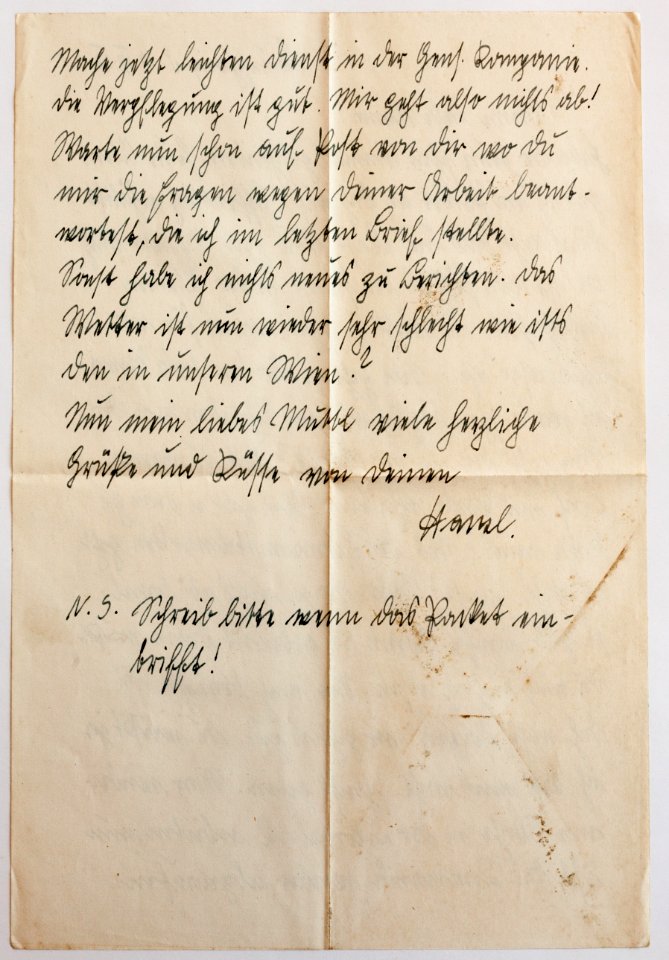 Mache jetzt leichten Dienst in der Gens. Kompanie.
Die Verpflegung ist gut. Mir geht also nichts ab!
Warte nun schon auf Post von dir wo du
mir die Fragen wegen deiner Arbeit beant-
wortest, die ich im letzten Brief stellte.
Sonst habe ich nichts neues zu Berichten. Das
Wetter ist nun wieder sehr schlecht wie ists
den in unseren Wien?
Nun mein liebes viele herzliche
Grüße und Küsse von Deinen
N. S. Schreib bitte wenn das Packet ein-
trifft!